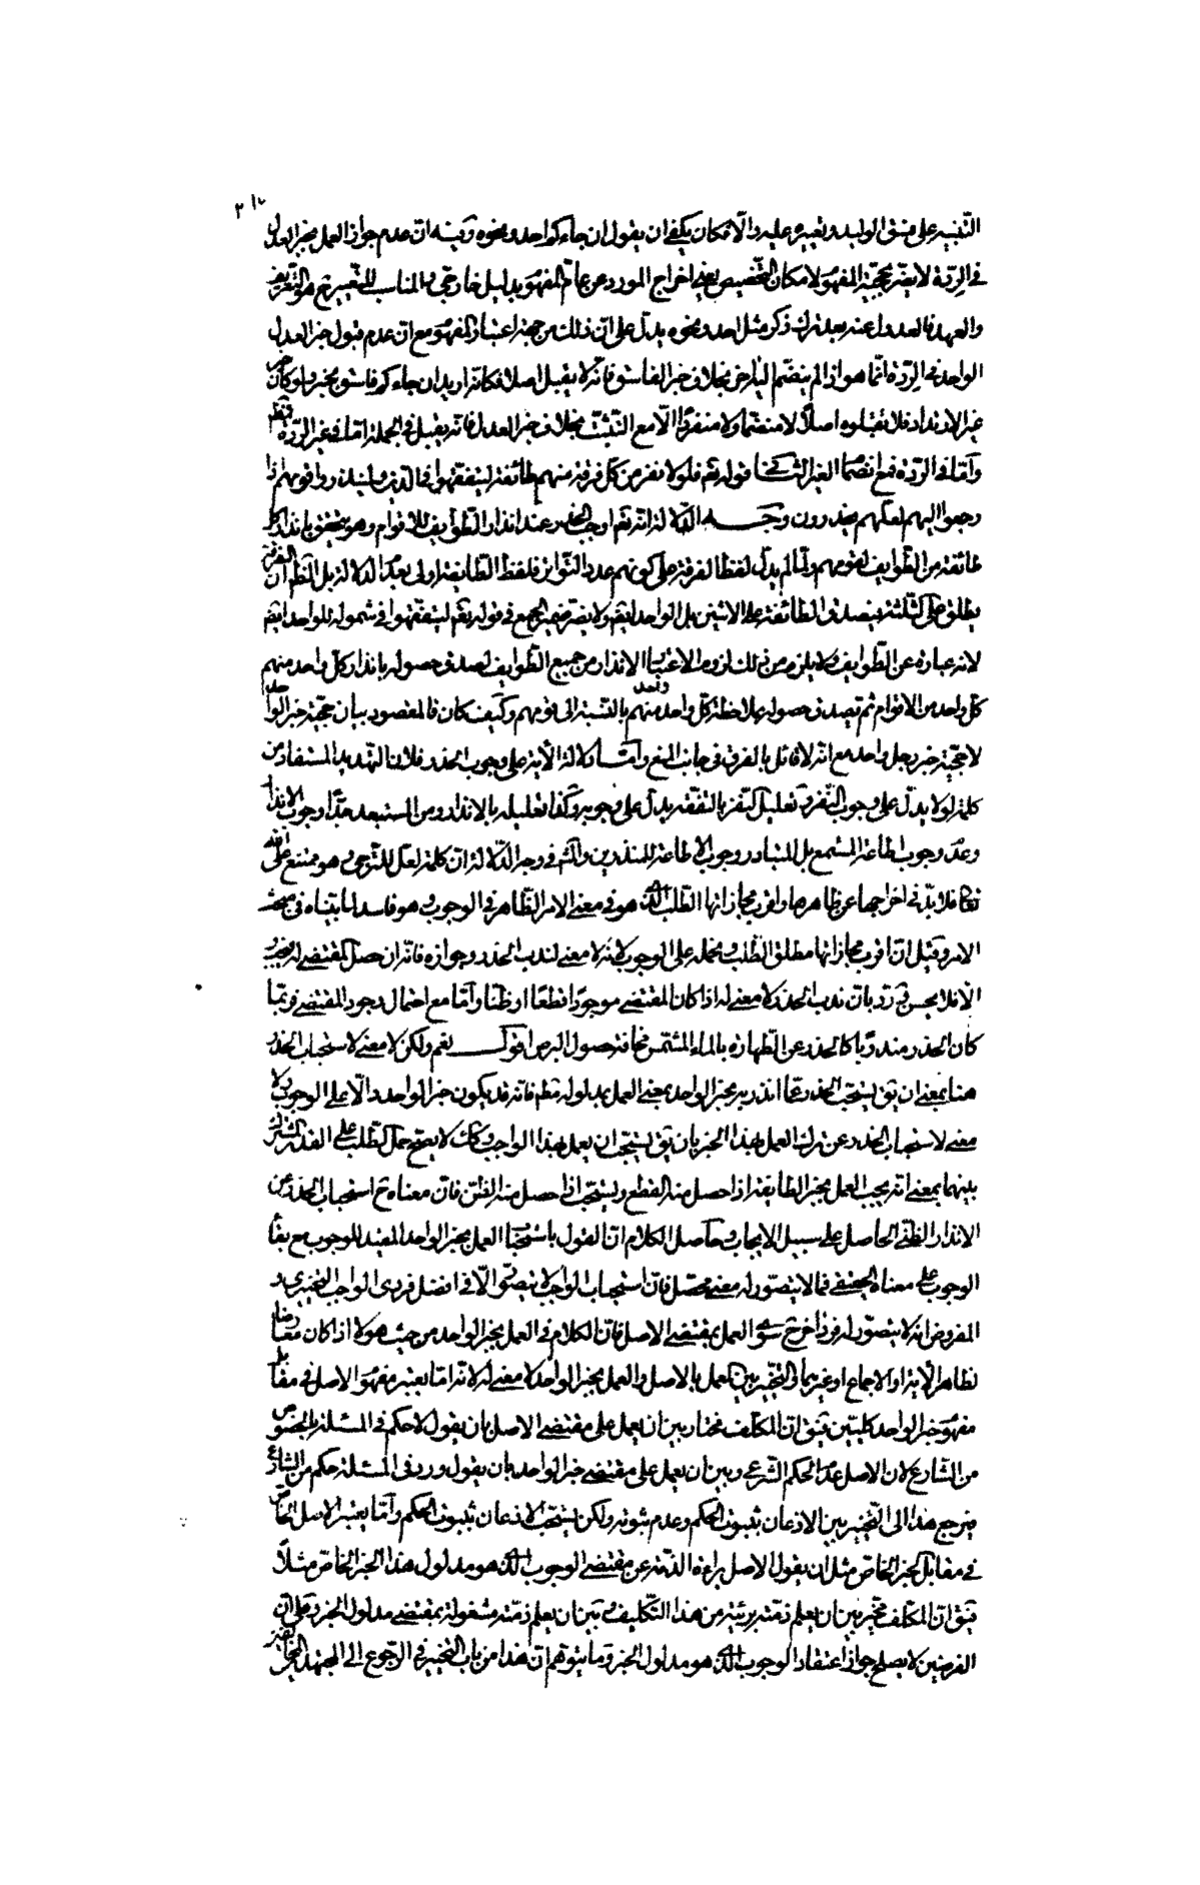 التنبيه على فسق الوليد وتعييره عليه والّا فكان يكفي ان يقول ان جاءكم احد ونحوه وفيه انّ عدم جواز العمل بخبر العدل
في الردّة لا يضرّ بحجيّة المفهوم لامكان التخصيص يعني اخراج المورد عن عامّ المفهوم بدليل خارجيّ والمناسب للتعيير هو التعريض
والعهد فالعدول عنه بعد ترك ذكر مثل احد ونحوه يدلّ على انّ ذلك من جهة اعتبار المفهوم مع انّ عدم قبول خبر العدل
الواحد في الردّة انّما هو اذا لم ينضمّ اليه اخر بخلاف خبر الفاسق فانّه لا يقبل اصلا فكانّه اريد ان جاءكم فاسق بخبر ولو كان من
غير الارتداد فلا تقبلوه اصلًا لا منضما ولا منفردا الّا مع التثبّت بخلاف خبر العدل فانّه يقبل في الجملة امّا في غير الردّة فمطلقا
وامّا في الردّة فمع انضمام الغير الثاني قوله تعم فلولا نفر من كلّ فرقة منهم طائفة ليتفقهوا في الدّين ولينذروا قومهم اذا
رجعوا اليهم لعلّهم يحذرون وجه الدّلالة انّه تعم اوجب الحذر عند انذار الطّوايف للاقوام وهو يتحقق بانذار كل
طائفة من الطّوايف لقومهم ولمّا لم يدلّ لفظ الفرقة على كونهم عدد التّواتر فلفظ الطّايفة اولى بعدم الدلالة بل الظّم انّ الفرقة
يطلق على الثلثة فيصدق الطائفة على الاثنين بل الواحد ايضم ولا يضرّ ضمير الجمع في قوله تعم ليتفقّهوا في شموله للواحد ايضم
لانه عبارة عن الطّوايف ولا يلزم من ذلك لزوم الاعتبار الانذار من جميع الطّوايف لصدق حصوله بانذار كلّ واحد منهم
كلّ واحد من الاقوام ثم يصدق حصوله بملاحظة كلّ واحد واحد منهم بالنّسبة الى قومهم وكيف كان فالمقصود بيان حجيّة خبر الواحد
لا حجيّة خبر رجل واحد مع انّه لا قائل بالفرق في جانب المنع وامّا دلالة الاية على وجوب الحذر فلانّ التهديد المستفاد من
كلمة لولا يدلّ على وجوب النّفر وتعليل النّفر بالتفقّه يدلّ على وجوبه وكذا تعليله بالانذار ومن المستبعد جدّا وجوب الانذار
وعدم وجوب اطاعة المستمع بل المتبادر وجوب الاطاعة للمنذرين وما قيل في وجه الدّلالة انّ كلمة لعلّ للترجّي وهو ممتنع على الله
تعم فلا بدّ في اخراجها عن ظاهرها واقرب مجازاتها الطّلب الّذي هو في معنى الامر الظّاهر في الوجوب وهو فاسد لما بيّناه في مبحث
الامر وقيل انّ اقرب مجازاتها مطلق الطّلب ويحمله على الوجوب لانّه لا معنى لندب الحذر وجوازه فانّه ان حصل المقتضي له يجب
والّا فلا يحسن فقد ردّ بانّ ندب الحذر لا معنى له اذا كان المقتضي موجودًا قطعًا او ظنّا وامّا مع احتمال وجود المقتضي فربّما
كان الحذر مندوبًا كالحذر عن الطّهارة بالماء المشمّس مخافة حصول البرص اقول نعم ولكن لا معنى لاستحباب الحذر
هنا بمعنى ان يق يستحبّ الحذر عمّا انذر به بخبر الواحد بمعنى العمل بمدلوله مطم فانّه قد يكون خبر الواحد دالّا على الوجوب ولا
معنى لاستحباب الحذر عن ترك العمل بهذا الخبر بان يق يستحبّ ان يعمل بهذا الواجب وكك لا يصحّ حمل الطّلب على القدر المشترك
بينهما بمعنى انّه يجب العمل بخبر الطايفة اذا حصل منه القطع ويستحبّ اذا حصل منه الظنّ فانّ معناه ح استحباب الحذر عن
الانذار الظّنّي الحاصل على سبيل الايجاب وحاصل الكلام انّ القول باستحباب العمل بخبر الواحد المفيد للوجوب مع بقاء
الوجوب على معناه الحقيقي فما لا يتصوّر له معنى محصّل فانّ استحباب الواجب لا يتصوّر الّا في افضل فردي الواجب التخييري و
المفروض انّه لا يتصوّر له فرد اخر ح سوى العمل بمقتضى الاصل فانّ الكلام في العمل بخبر الواحد من حيث هو لا اذا كان معارضا
لظاهر الاية او الاجماع او غيرهما والتخيير بين العمل بالاصل والعمل بخبر الواحد لا معنى له لانّه امّا يعتبر مفهوم الاصل في مقابل
مفهوم خبر الواحد كليّتين فيق انّ المكلّف مختار بين ان يعمل على مقتضى الاصل بان يقول لا حكم في المسئلة بالخصوص
من الشّارع لانّ الاصل عدم الحكم الشّرعي وبين ان يعمل على مقتضى خبر الواحد بان يقول ورد في المسئلة حكم من الشارع
فيرجع هذا الى التّخيير بين الاذعان بثبوت الحكم وعدم ثبوته ولكن يستحبّ الاذعان بثبوت الحكم وامّا يعتبر الاصل الخاصّ
في مقابل الخبر الخاصّ مثل ان يقول الاصل براءة الذّمة عن مقتضى الوجوب الّذي هو مدلول هذا الخبر الخاصّ مثلًا
فيق انّ المكلّف مخيّر بين ان يعلم ذمّته بريئة من هذا التّكليف وبين ان يعلم ذمّته مشغولة بمقتضى مدلول الخبر وعلى ايّ
الفرضين لا يصلح جواز اعتقاد الوجوب الّذي هو مدلول الخبر وما يتوهّم انّ هذا من باب التخيير في الرّجوع الى المجتهد المخالف